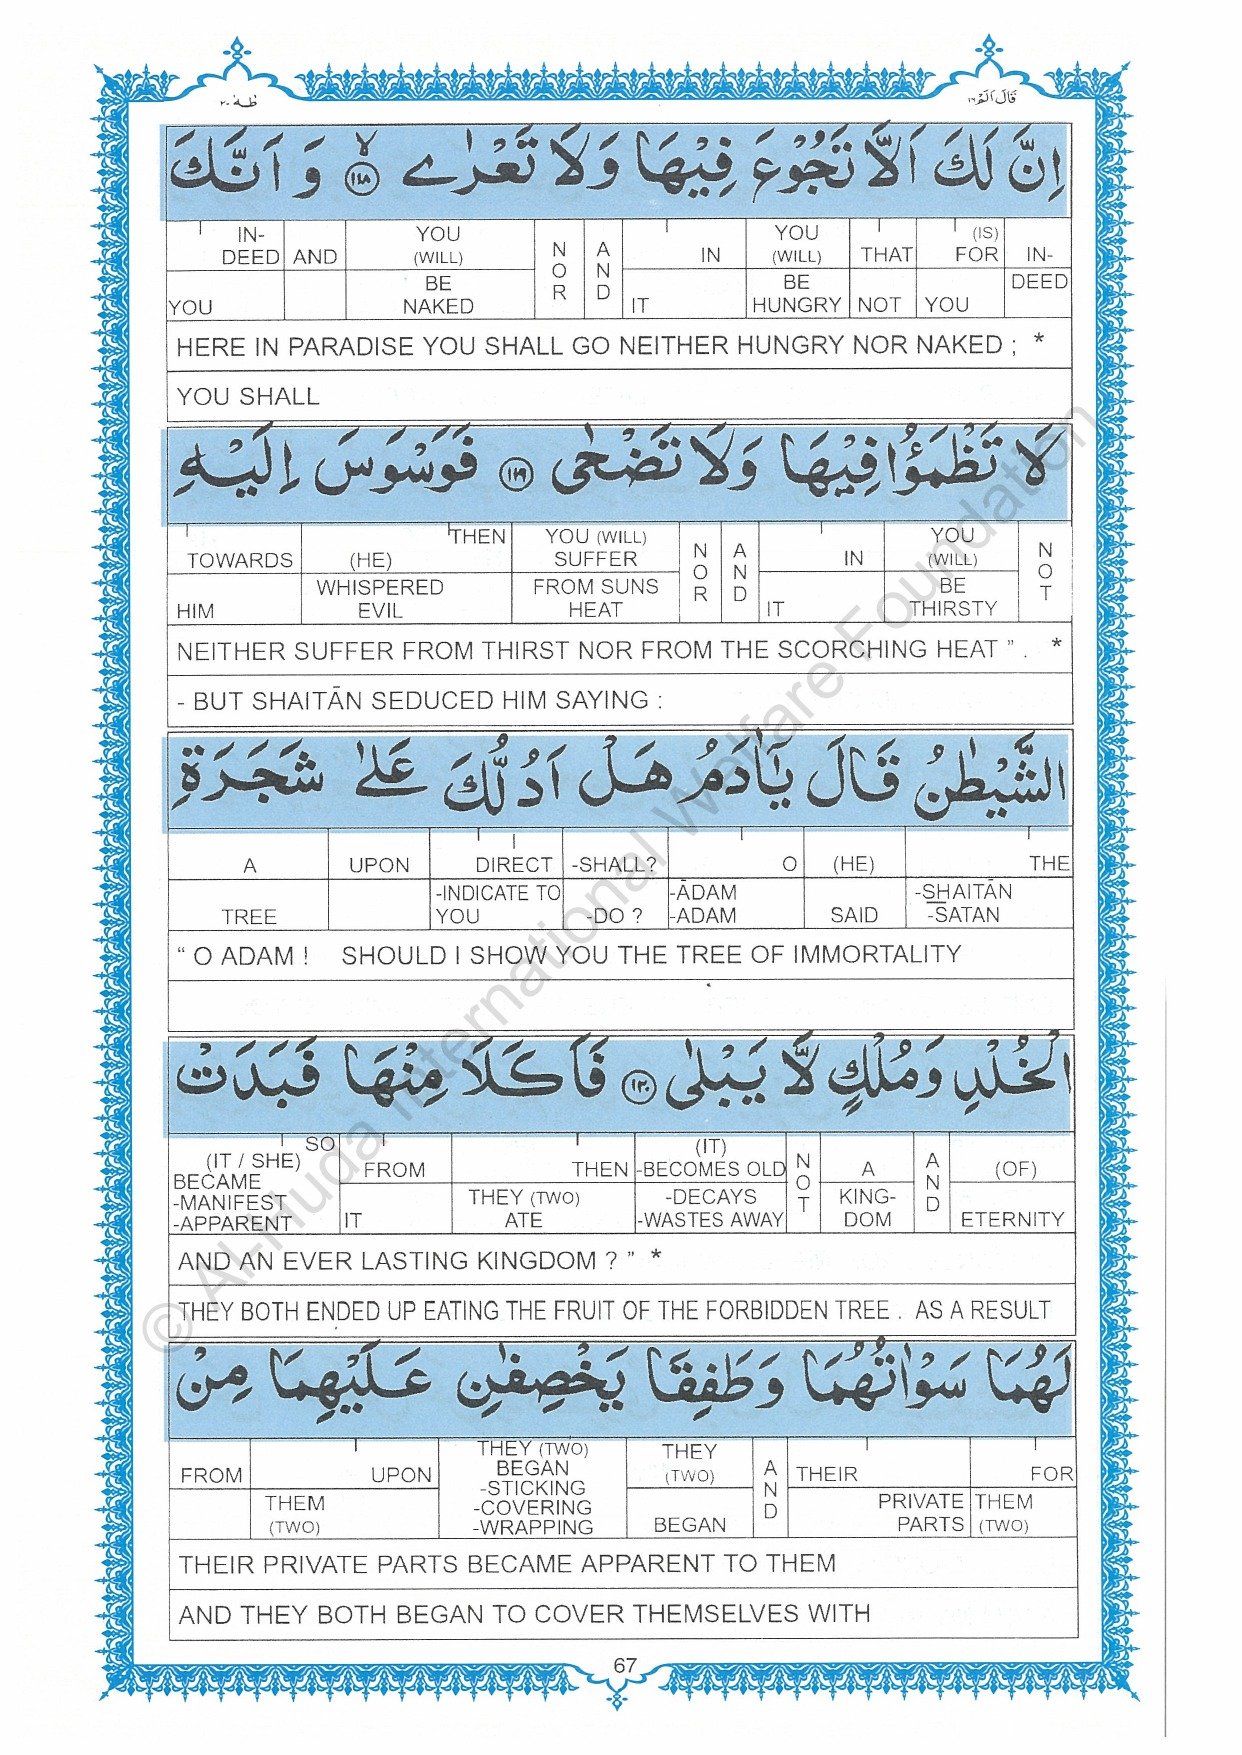 قَالَ اَلَمْ ١٦
طٰهٰ ٢٠
اِنَّ لَكَ اَلَّا تَجُوْعَ فِيْهَا وَلَا تَعْرٰے ﴿١١٨﴾ۙ وَ اَنَّكَ
IN- YOU (IS) YOU IN-
DEED AND (WILL) N A IN (WILL) THAT FOR IN-
YOU BE O N IT BE NOT YOU DEED
NAKED R D HUNGRY
HERE IN PARADISE YOU SHALL GO NEITHER HUNGRY NOR NAKED ; *
YOU SHALL
لَا تَظْمَؤُا فِيْهَا وَلَا تَضْحٰى ﴿١١٩﴾ فَوَسْوَسَ اِلَيْهِ
THEN YOU (WILL) YOU
TOWARDS (HE) SUFFER N A IN (WILL) N
HIM WHISPERED FROM SUNS O N IT BE O
EVIL HEAT R D THIRSTY T
NEITHER SUFFER FROM THIRST NOR FROM THE SCORCHING HEAT ” . *
- BUT SHAITĀN SEDUCED HIM SAYING :
الشَّيْطٰنُ قَالَ يٰٓاٰدَمُ هَلْ اَدُلُّكَ عَلٰى شَجَرَةِ
A UPON DIRECT -SHALL? O (HE) THE
-INDICATE TO -ĀDAM -SHAITĀN
TREE YOU -DO ? -ADAM SAID -SATAN
“ O ADAM ! SHOULD I SHOW YOU THE TREE OF IMMORTALITY
الْخُلْدِ وَمُلْكٍ لَّا يَبْلٰى ﴿١٢٠﴾ فَاَكَلَا مِنْهَا فَبَدَتْ
SO (IT)
(IT / SHE) FROM THEN -BECOMES OLD N A A (OF)
BECAME O N
-MANIFEST THEY (TWO) -DECAYS T KING- D
-APPARENT IT ATE -WASTES AWAY DOM ETERNITY
AND AN EVER LASTING KINGDOM ? ” *
THEY BOTH ENDED UP EATING THE FRUIT OF THE FORBIDDEN TREE . AS A RESULT
لَهُمَا سَوْاٰتُهُمَا وَطَفِقَا يَخْصِفٰنِ عَلَيْهِمَا مِنْ
THEY (TWO) THEY
FROM UPON BEGAN (TWO) A THEIR FOR
-STICKING N
THEM -COVERING D PRIVATE THEM
(TWO) -WRAPPING BEGAN PARTS (TWO)
THEIR PRIVATE PARTS BECAME APPARENT TO THEM
AND THEY BOTH BEGAN TO COVER THEMSELVES WITH
67
© Al-Huda International Welfare Foundation